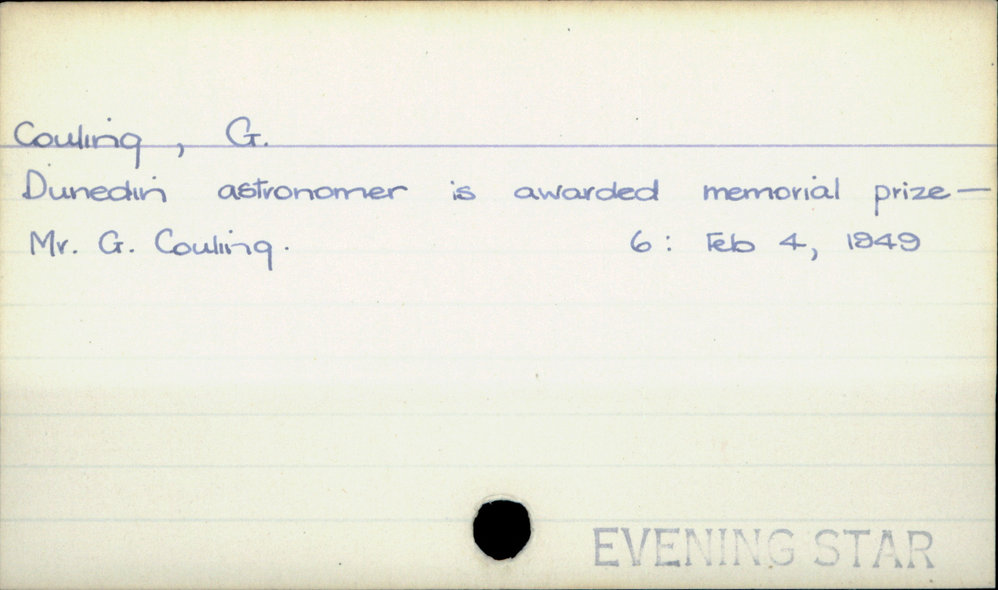 Couling, G.
Dunedin astronomer is awarded memorial prize —
Mr. G. Couling. 6: Feb 4, 1949
EVENING STAR